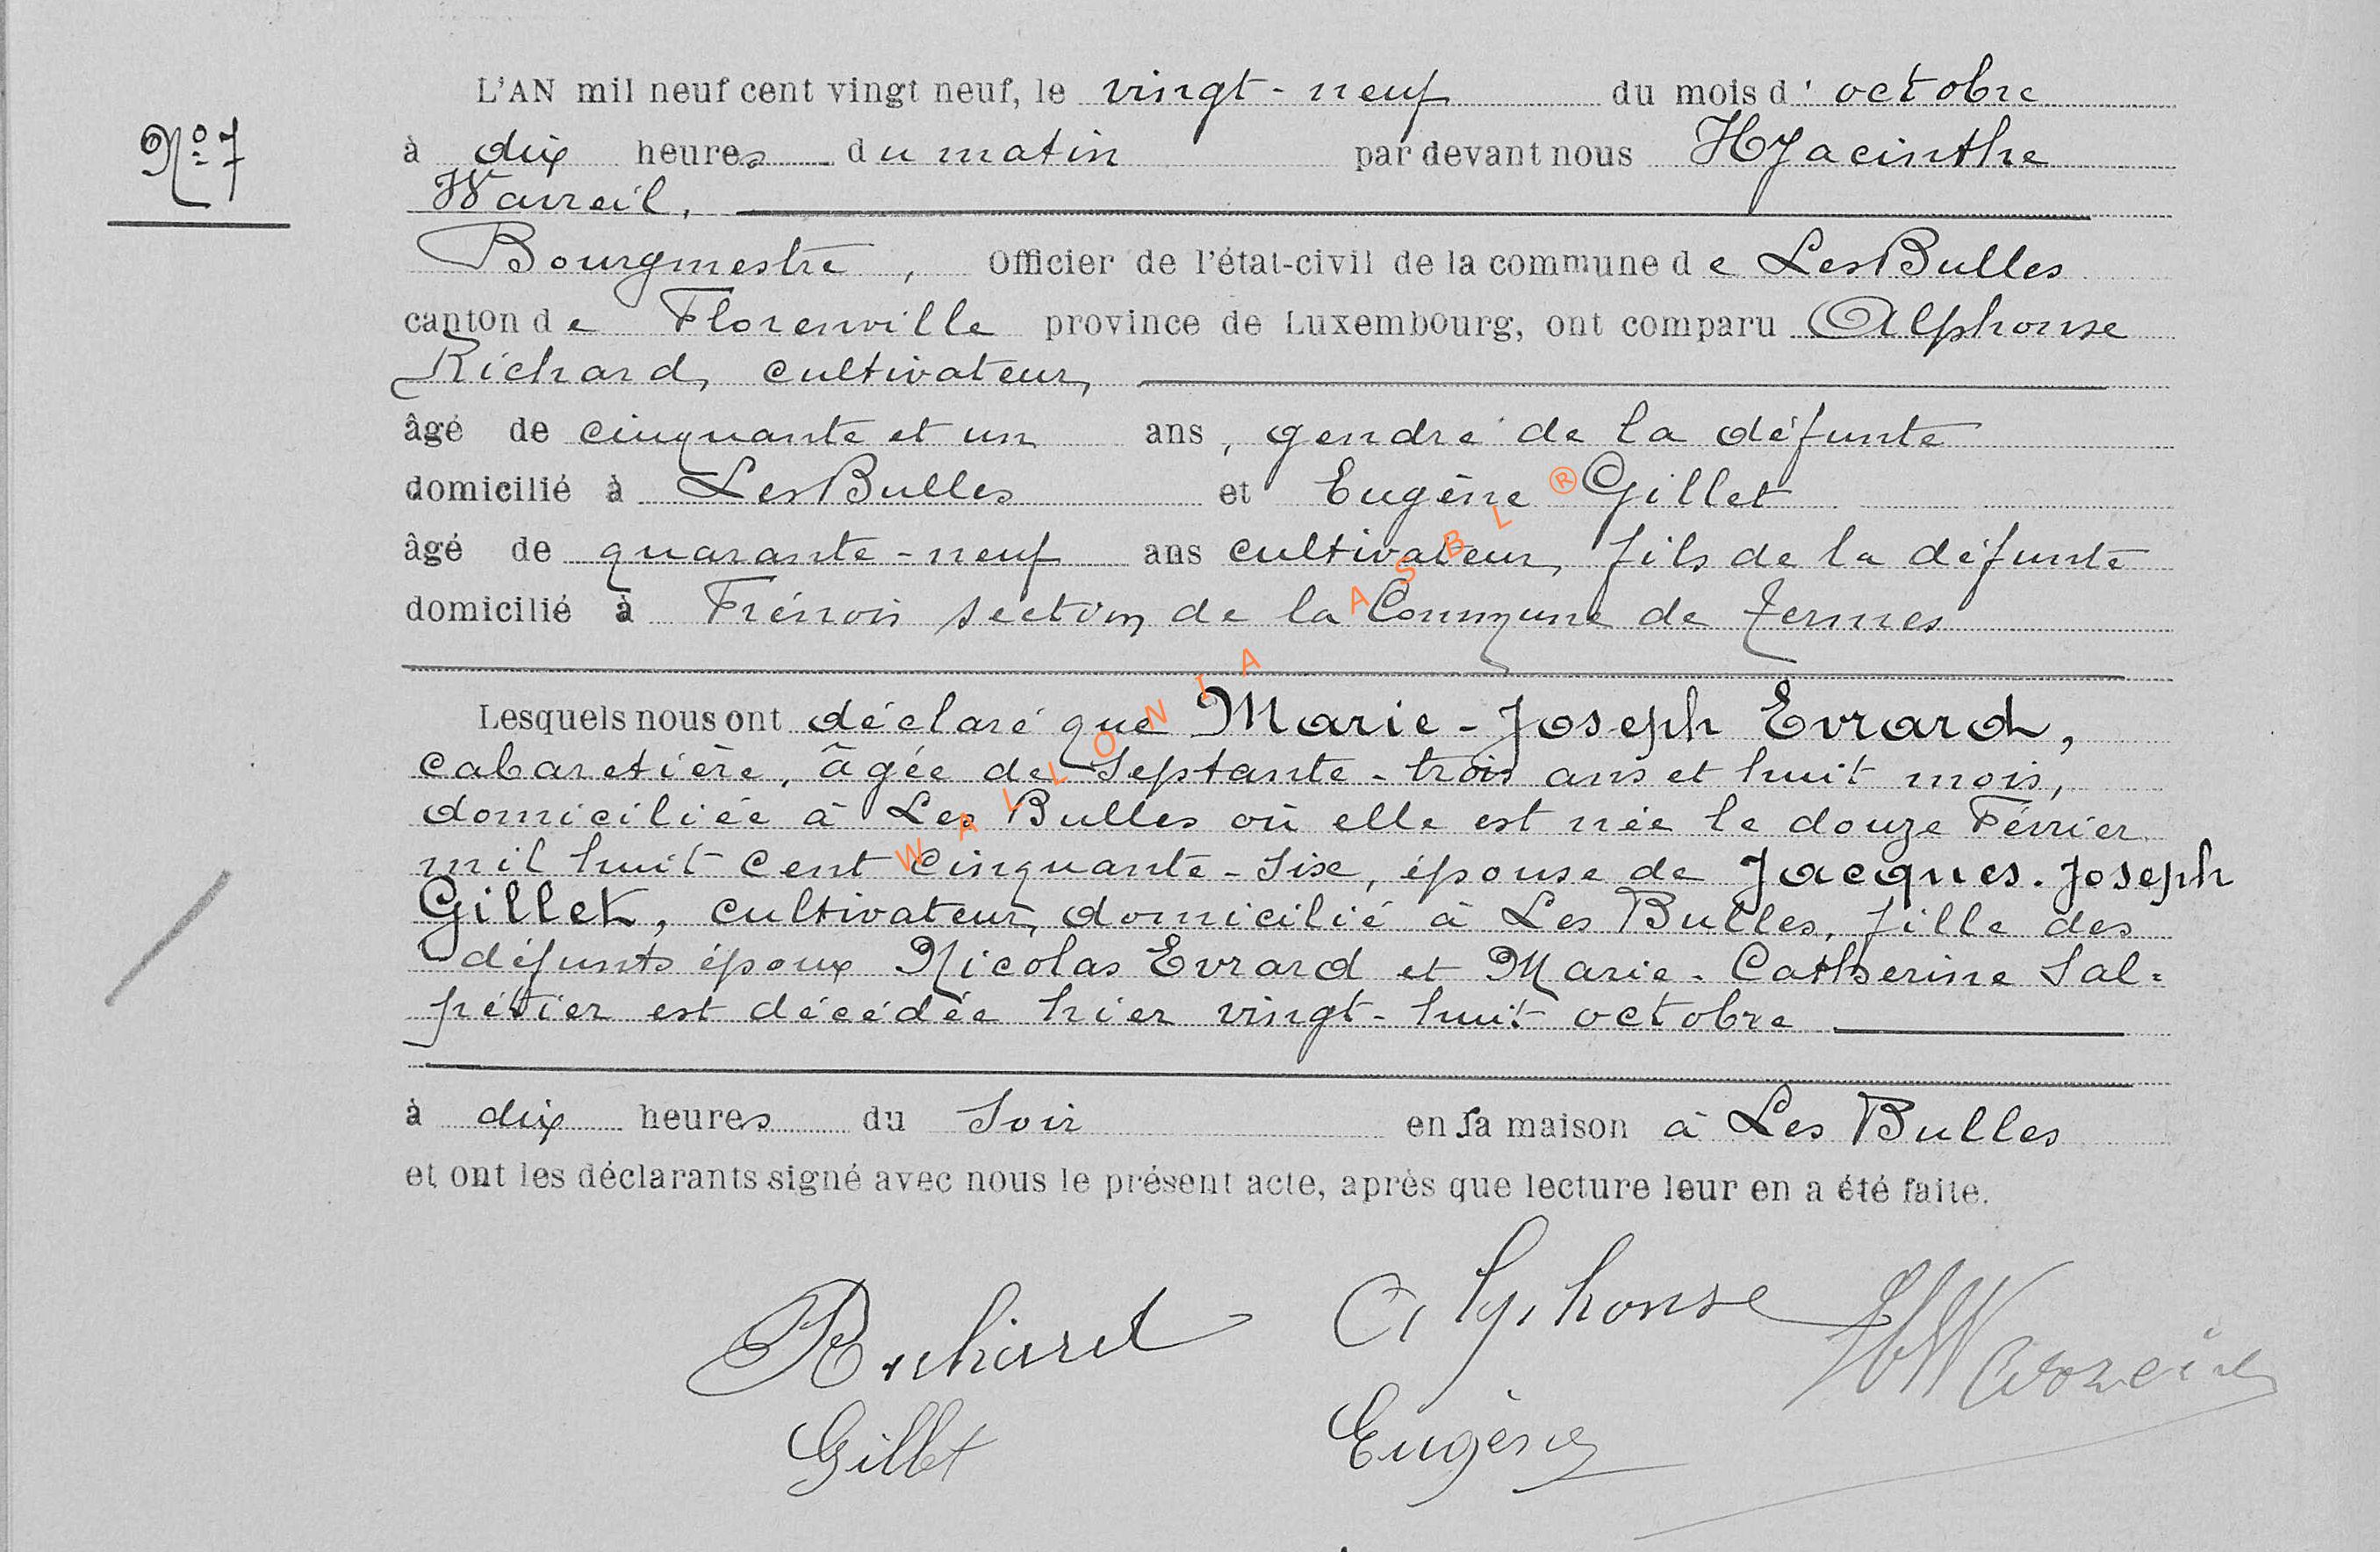 L'AN mil neuf cent vingt neuf, le vingt-neuf du mois d'octobre
Nº 7
à dix heures du matin par devant nous Hyacinthe
Wavreil,
Bourgmestre, Officier de l'état-civil de la commune de Les Bulles
canton de Florenville province de Luxembourg, ont comparu Alphonse
Richard, cultivateur,
âgé de cinquante et un ans, gendre de la défunte
domicilié à Les Bulles et Eugène Gillet
âgé de quarante-neuf ans cultivateur, fils de la défunte
domicilié à Frénois section de la Commune de Termes
WALLONIA ASBL ®
Lesquels nous ont déclaré que Marie-Joseph Evrard,
cabaretière, âgée de Septante-trois ans et huit mois,
domiciliée à Les Bulles où elle est née le douze Février
mil huit cent cinquante-six, épouse de Jacques-Joseph
Gillet, cultivateur, domicilié à Les Bulles, fille des
défunts époux Nicolas Evrard et Marie-Catherine Sal=
pétier est décédée hier vingt-huit octobre
à dix heures du Soir en sa maison à Les Bulles
et ont les déclarants signé avec nous le présent acte, après que lecture leur en a été faite.
Richard Alphonse HWavreil
Gillet Eugène